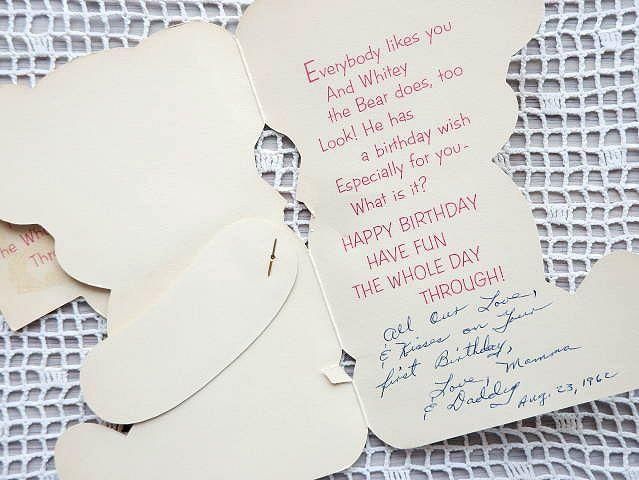 Everybody likes you
And Whitey
the Bear does, too
Look! He has
a birthday wish
Especially for you-
What is it?
HAPPY BIRTHDAY
HAVE FUN
THE WHOLE DAY
THROUGH!
All our Love,
& Kisses on Your
first Birthday,
Love, Mamma
& Daddy
Aug. 23, 1962
he Wh
Thr